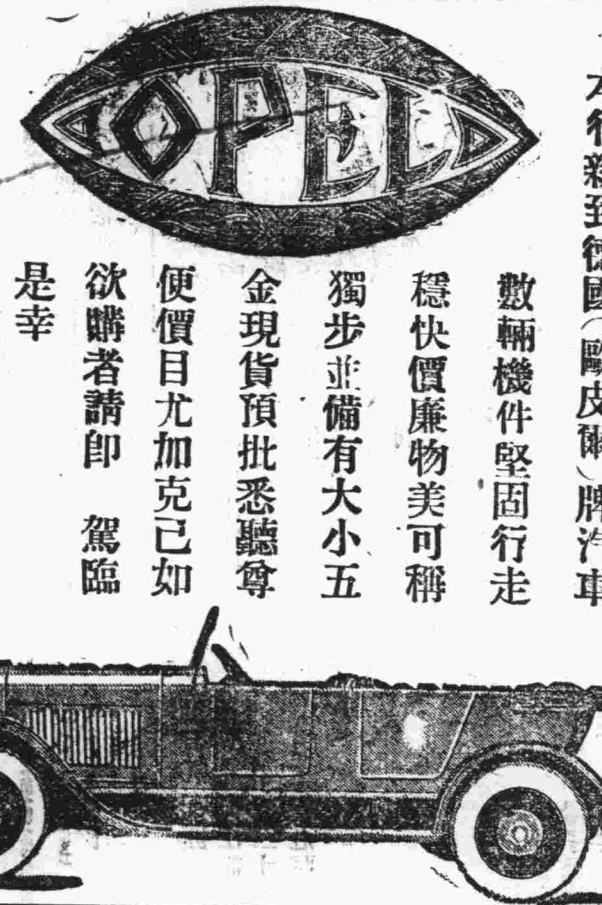 OPEL
本行新到德國（歐皮爾）牌汽車
數輛機件堅固行走
穩快價廉物美可稱
獨步並備有大小五
金現貨預批悉聽尊
便價目尤加克己如
欲購者請卽　駕臨
是幸